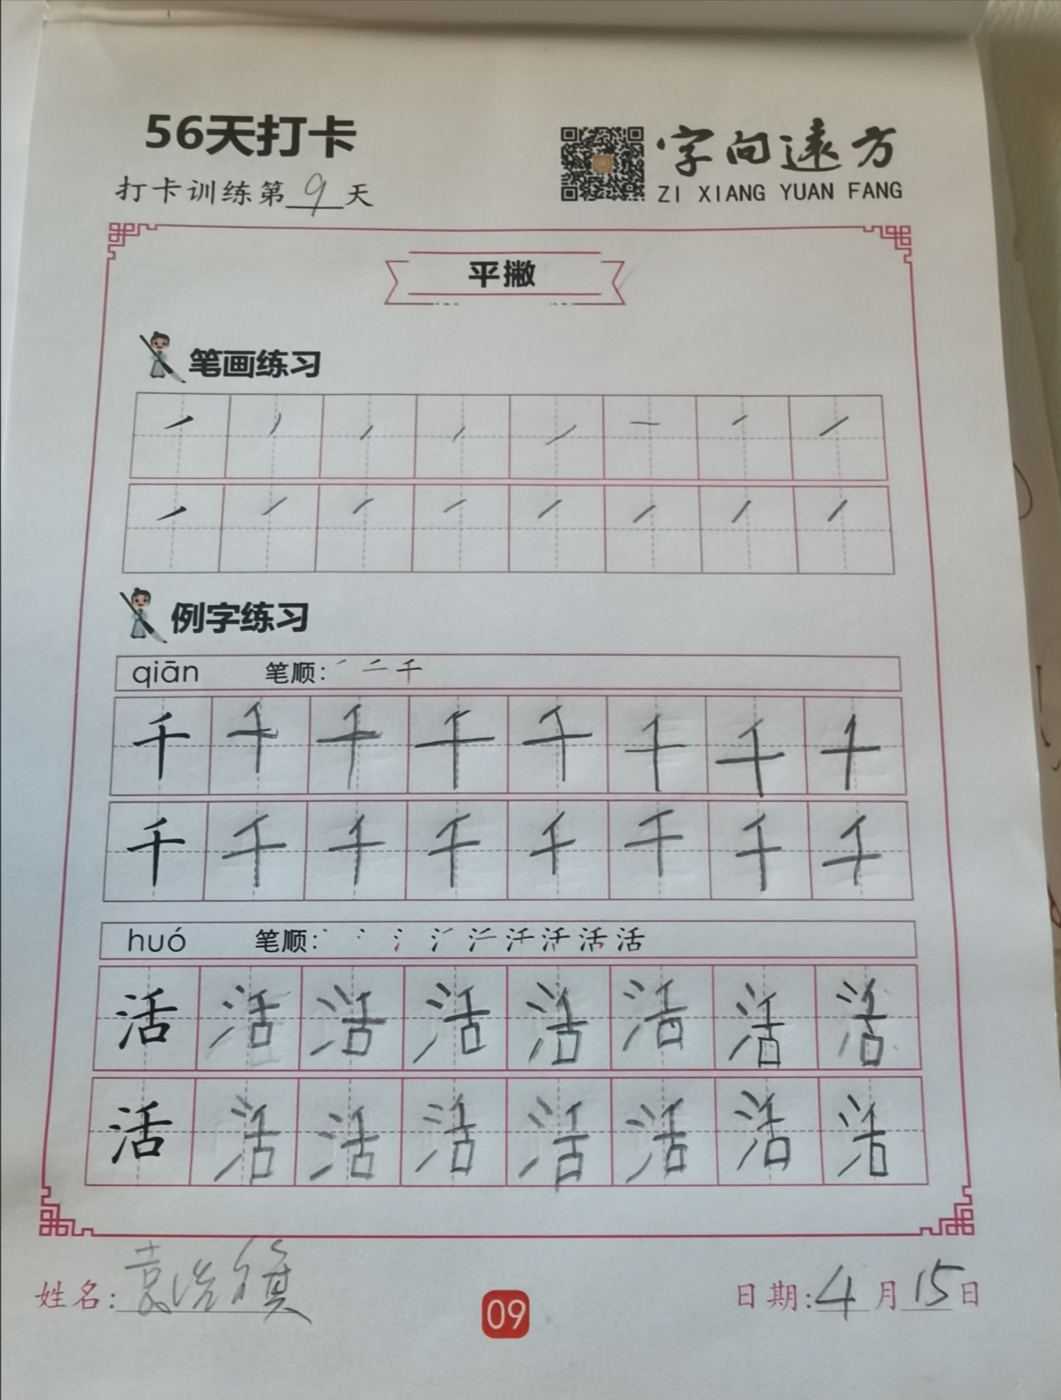 56天打卡
字向远方
打卡训练第9天
ZI XIANG YUAN FANG
平撇
笔画练习
例字练习
qiān 笔顺:
千 千 千 千 千 千 千 千
千 千 千 千 千 千 千 千
huó 笔顺:
活 活 活 活 活 活 活 活
活 活 活 活 活 活 活 活
姓名:袁浩
日期:4月15日
09